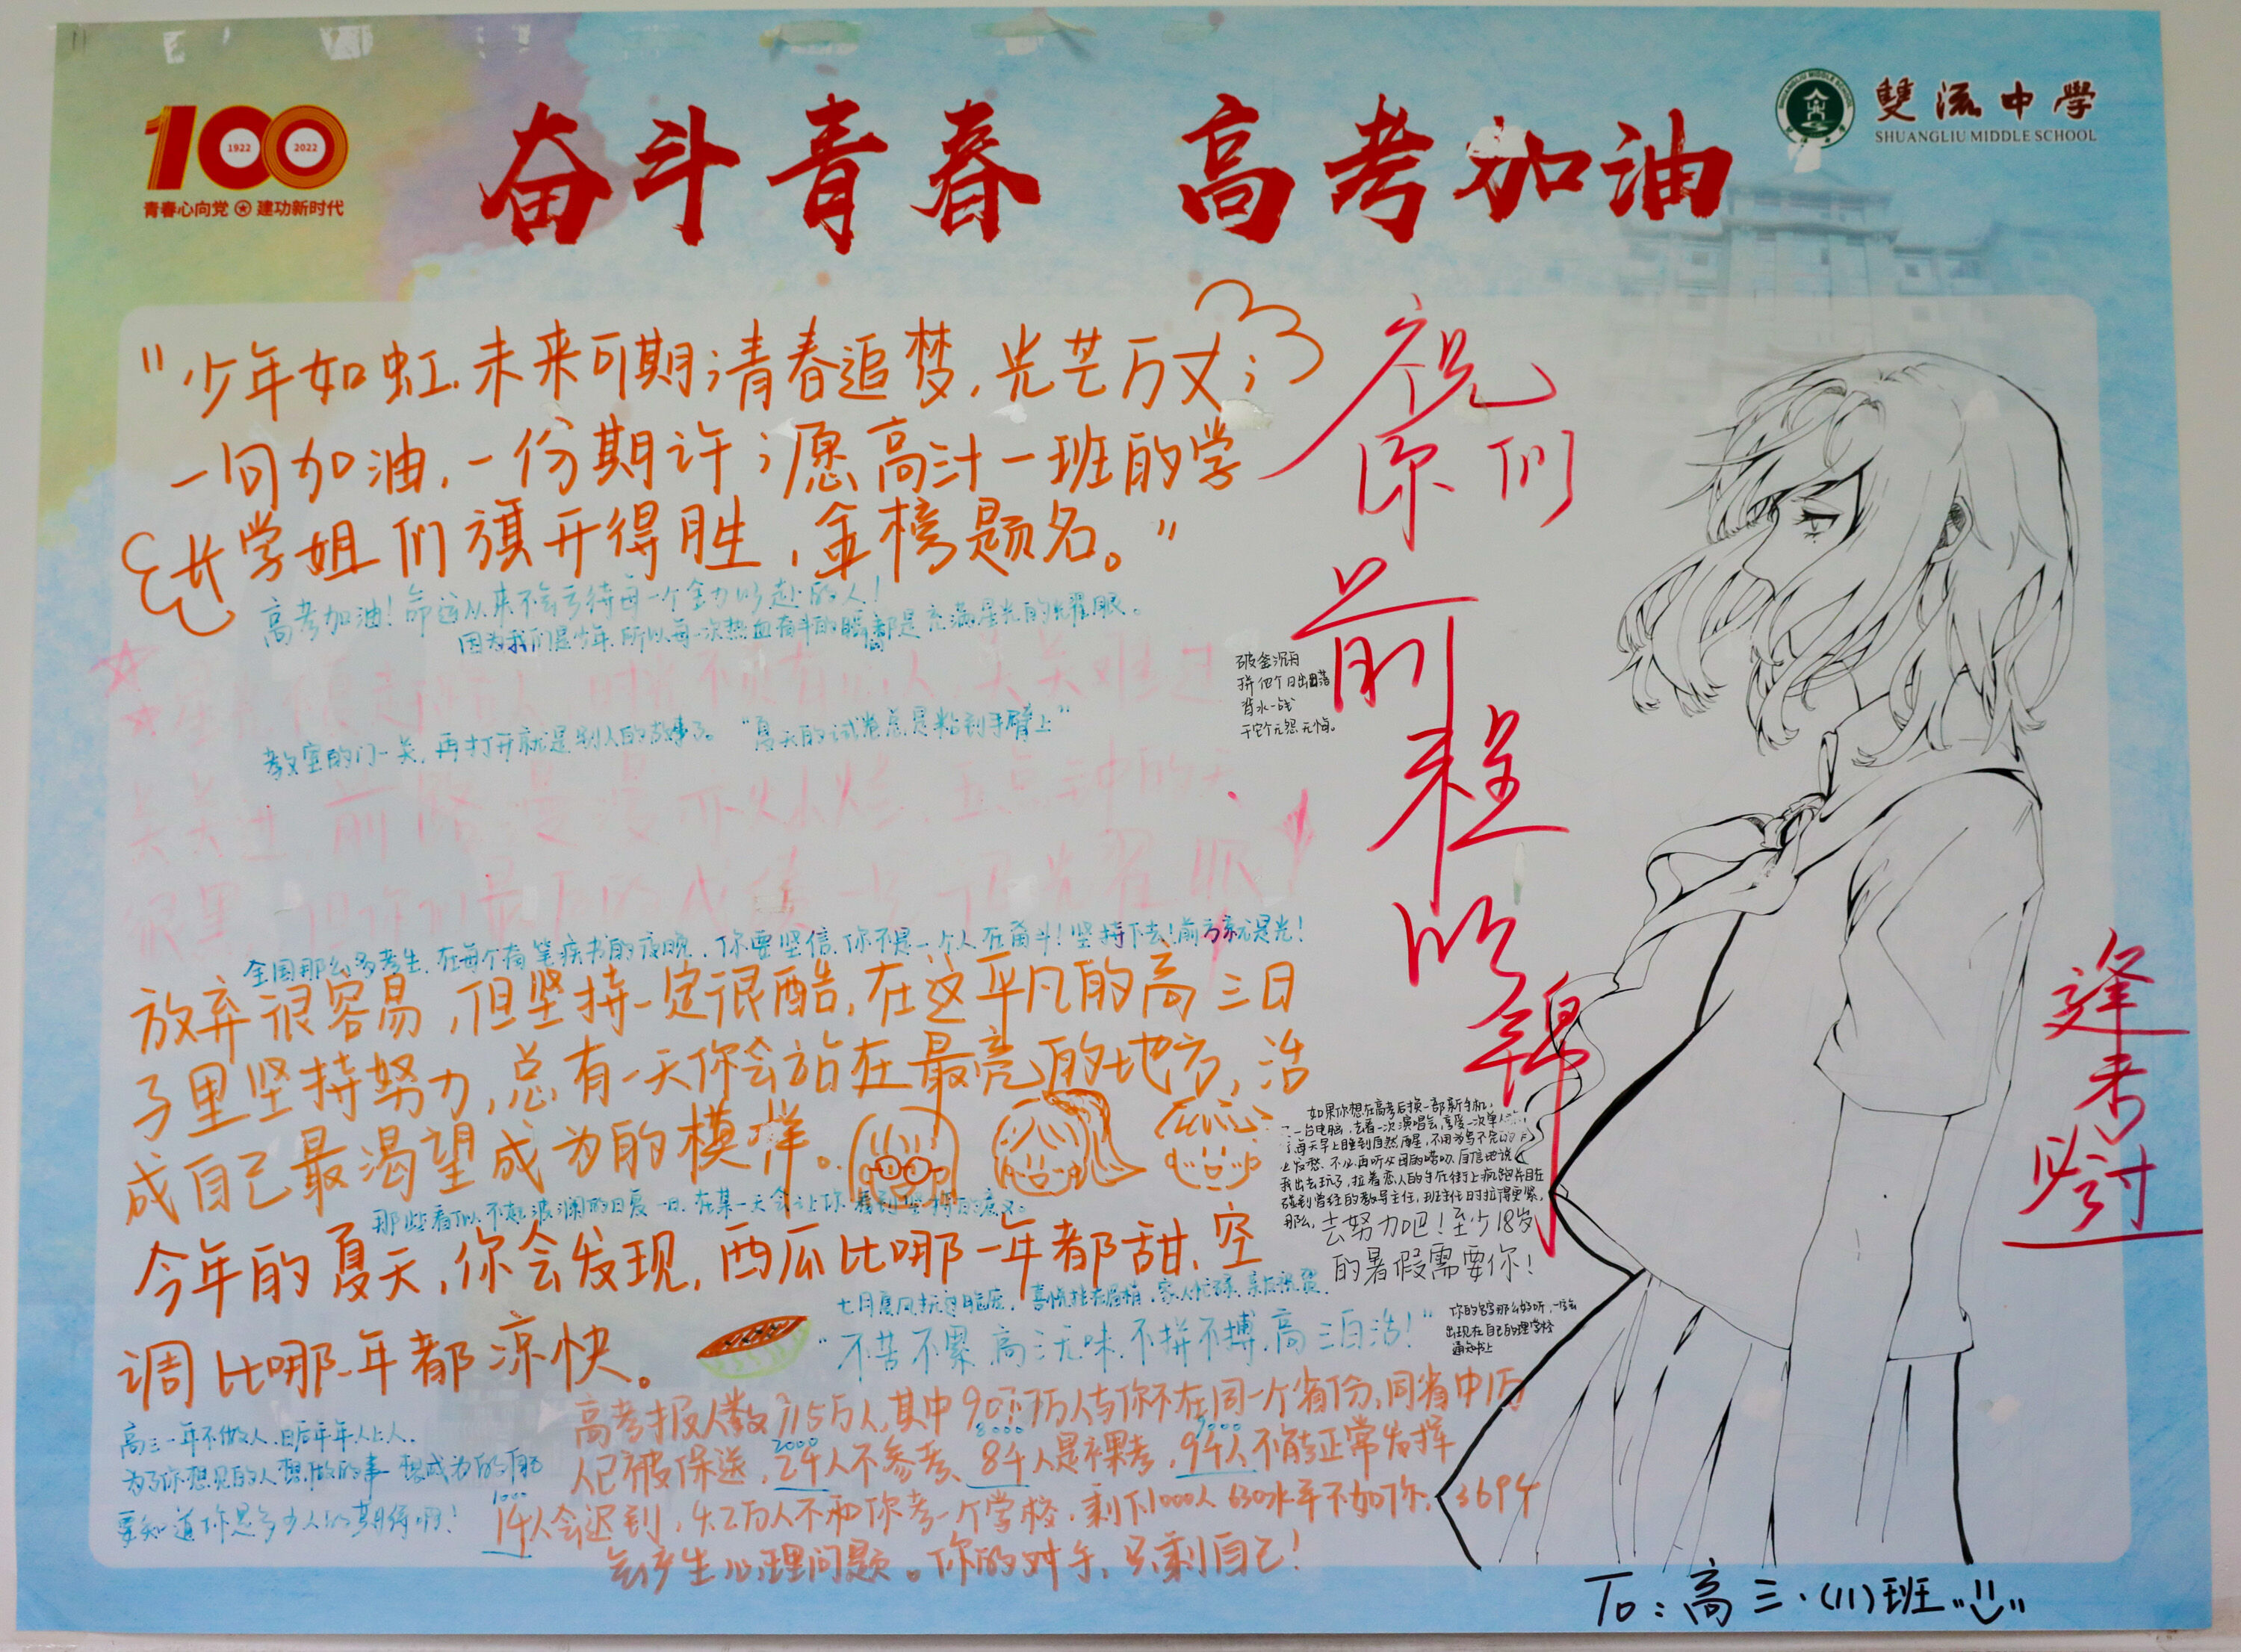 100
1922
2022
青春心向党 建功新时代
奋斗青春 高考加油
雙流中學
SHUANGLIU MIDDLE SCHOOL
"少年如虹,未来可期;青春追梦,光芒万丈;
一句加油,一份期许;愿高三十一班的学
长学姐们旗开得胜,金榜题名。"
高考加油!命运从来不会亏待每一个全力以赴的人!
因为我们是少年,所以每一次热血奋斗的瞬间都是充满星光的耀眼。
教室的门一关,再打开就是别人的故事了。"夏天的试卷总是粘到手臂上"
前路漫漫亦灿烂
全国那么多考生,在每个奋笔疾书的夜晚,你要坚信,你不是一个人在奋斗!坚持下去!前方就是光!
放弃很容易,但坚持一定很酷,在这平凡的高三日
子里坚持努力,总有一天你会站在最亮的地方,活
成自己最渴望成为的模样。
那些看似不起波澜的日复一日,在某一天会让你看到坚持的意义。
今年的夏天,你会发现,西瓜比哪一年都甜,空
调比哪一年都凉快。
七月夏风抚过脸庞,喜悦挂在眉梢,家人忙碌,亲友祝贺,
"不苦不累,高三无味,不拼不搏,高三白活!"
高三一年不做人,日后年年人上人。
为了你想见的人 想做的事 想成为的自己
要知道你是多少人的期待啊!
高考报人数915万人,其中90万人与你不在同一个省份,同省中1万
人已被保送,2千人不参考,8千人是裸考,9千人不能正常发挥
2000
8000
9000
1000
1千人会迟到,4.2万人不和你考一个学校,剩下1000人 630水平不如你,369个
会产生心理问题。你的对手,只剩自己!
祝
你们
前
程
似
锦
破釜沉舟
拼他个日出日落
背水一战
干它个无怨无悔。
如果你想在高考后换一部新手机,
一台电脑,去看一次演唱会,享受一次单人
每天早上睡到自然醒,不用为写不完的
发愁,不必再听父母的唠叨,自信地说
我出去玩了,拉着恋人的手在街上疯跑并且在
碰到曾经的教导主任,班主任时拉得更紧,
那么,去努力吧!至少18岁
的暑假需要你!
你的名字那么好听,一定会
出现在自己的理想学校
通知书上
逢
考
必
过
To:高三·(11)班